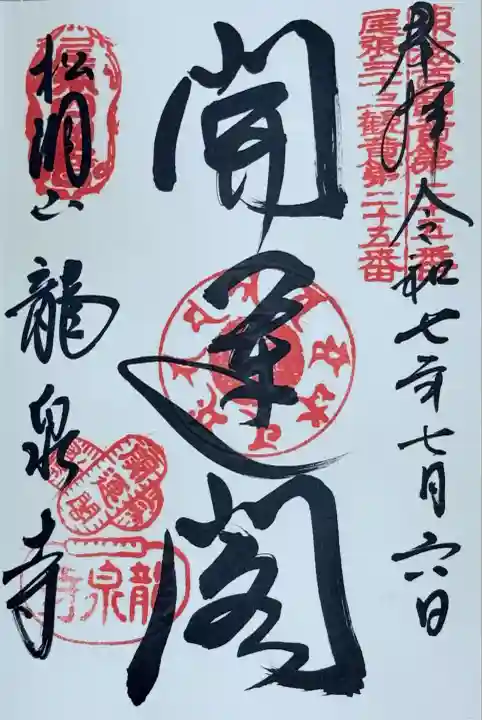 奉拝 令和七年七月六日
尾張三十三観音第二十五番
開運閣
松洞山 龍泉寺
開運閣
龍泉寺